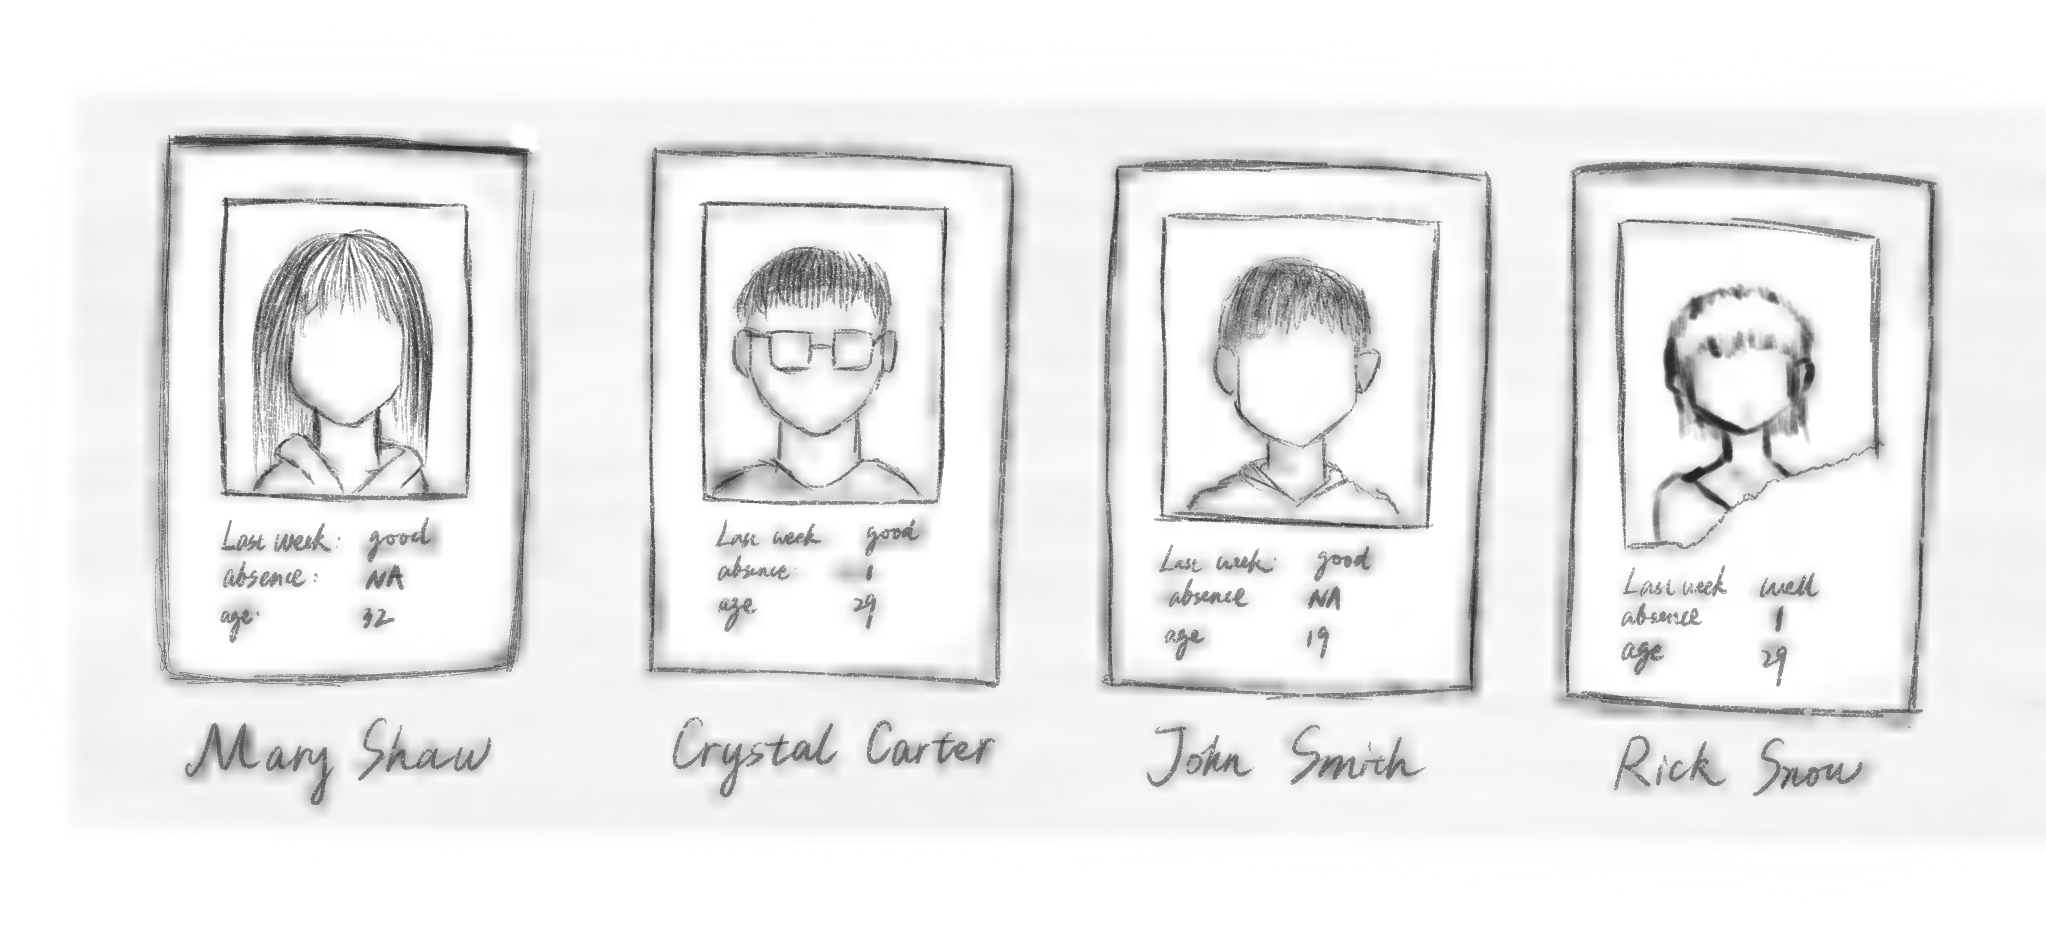 Last week: good
absence: NA
age: 32
Mary Shaw
Last week good
absence 1
age 29
Crystal Carter
Last week: good
absence NA
age 19
John Smith
Last week well
absence 1
age 29
Rick Snow